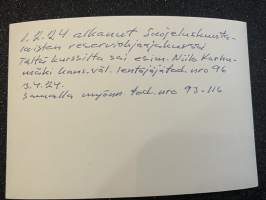 1.2.24 alkanut Suojeluskunta-
laisten reserviohjaajakurssi
Tältä kurssilta sai esim. Niilo Karhu-
mäki kans.väl. lentäjätod. nro 96
3.4.24.
Samalla myönn. tod. nro 93-116